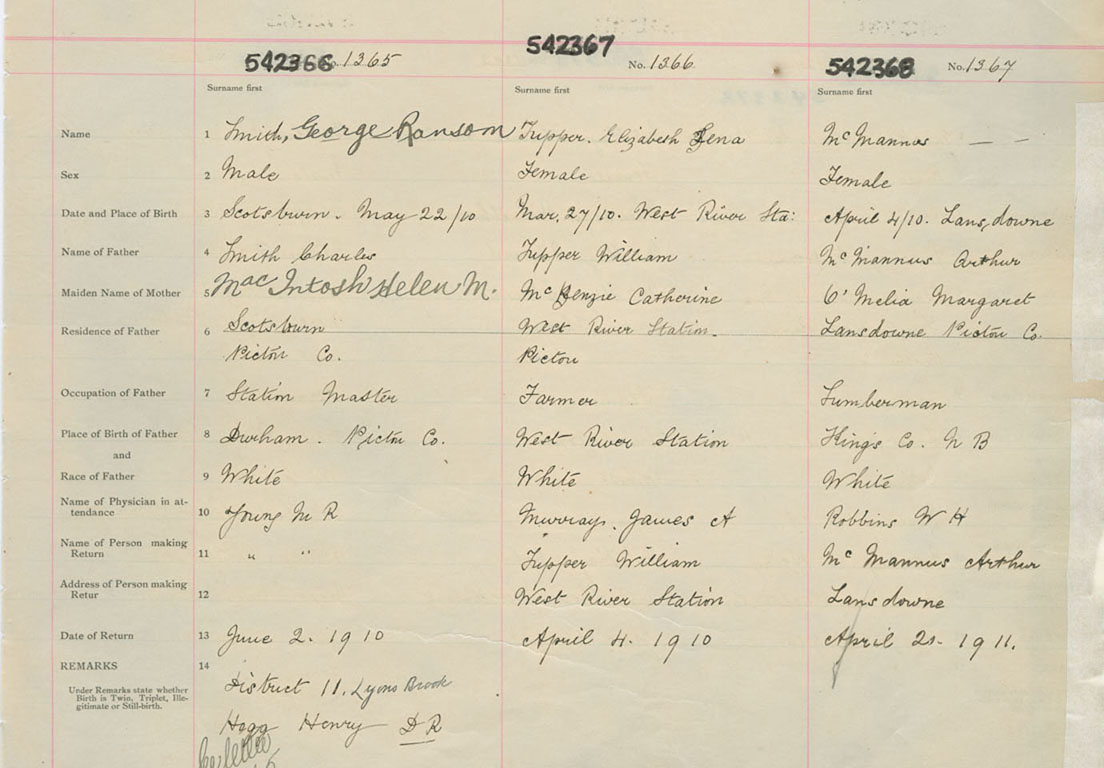 542366 No. 1365 542367 No. 1366 542368 No. 1367
Surname first Surname first Surname first
Name 1 Smith, George Ransom Tupper. Elizabeth Lena McMannus — —
Sex 2 Male Female Female
Date and Place of Birth 3 Scotsburn. May 22/10 Mar. 27/10. West River Sta: April 4/10. Lansdowne
Name of Father 4 Smith Charles Tupper William McMannus Arthur
Maiden Name of Mother 5 MacIntosh Helen M. McKenzie Catherine O'Melia Margaret
Residence of Father 6 Scotsburn West River Station. Lansdowne Pictou Co.
Pictou Co. Pictou
Occupation of Father 7 Station Master Farmer Lumberman
Place of Birth of Father 8 Durham. Pictou Co. West River Station Kings Co. N B
and
Race of Father 9 White White White
Name of Physician in at-
tendance 10 Young M R Murray, James A Robbins W H
Name of Person making
Return 11 " " Tupper William McMannus Arthur
Address of Person making
Retur 12 West River Station Lansdowne
Date of Return 13 June 2. 1910 April 4. 1910 April 21. 1911.
REMARKS 14
District 11. Lyons Brook
Under Remarks state whether
Birth is Twin, Triplet, Ille-
gitimate or Still-birth.
Hogg Henry D R